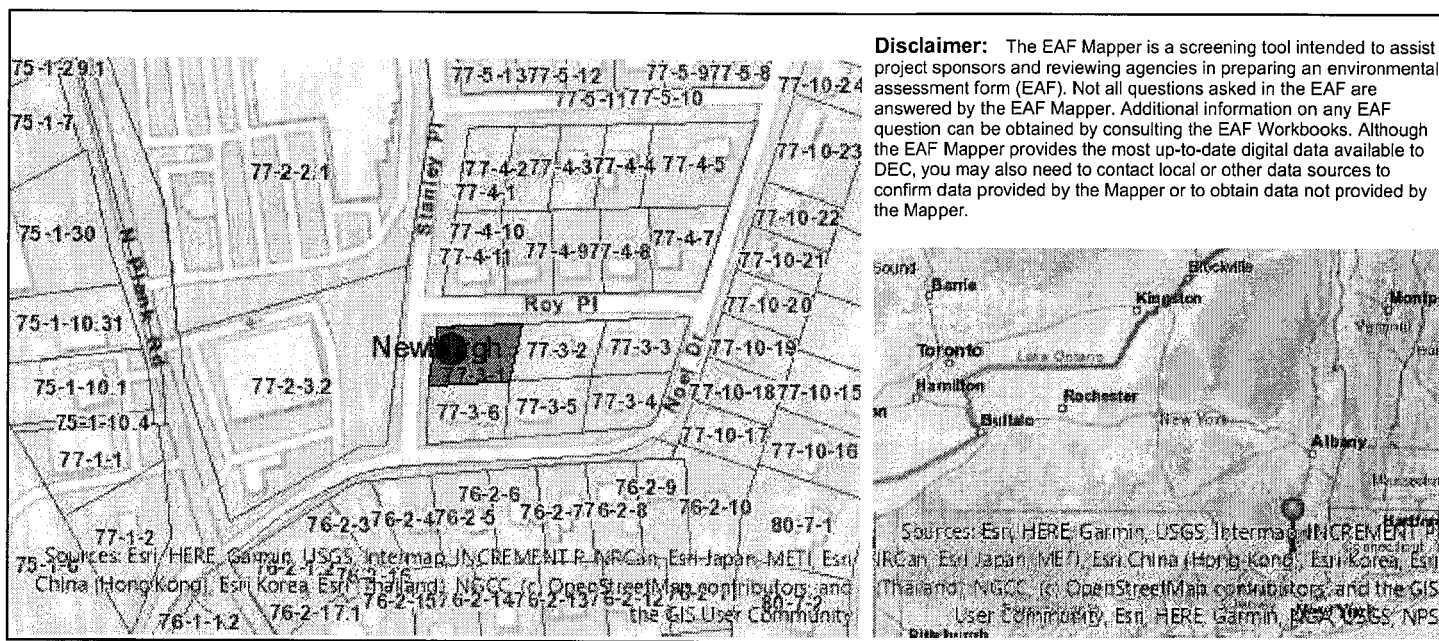 75-1-29.1
77-5-13 77-5-12 77-5-9 77-5-8
77-10-24
77-5-11 77-5-10
75-1-7
77-10-23
77-2-2.1
77-4-2 77-4-3 77-4-4 77-4-5
77-4-1
Stanley Pl
77-10-22
75-1-30
77-4-10
77-4-7
77-4-11 77-4-9 77-4-8
77-10-21
N Plank Rd
Roy Pl
77-10-20
75-1-10.31
Newburgh
77-3-2
77-3-3
77-10-19
77-3-1
Noel Dr
75-1-10.1
77-2-3.2
77-10-18 77-10-15
77-3-6
77-3-5
77-3-4
75-1-10.4
77-10-17
77-1-1
77-10-16
76-2-6
76-2-9
76-2-3 76-2-4 76-2-5 76-2-7 76-2-8
76-2-10
80-7-1
77-1-2
Sources: Esri, HERE, Garmin, USGS, Intermap, INCREMENT P, NRCan, Esri Japan, METI, Esri
China (Hong Kong), Esri Korea, Esri (Thailand), NGCC, (c) OpenStreetMap contributors, and
the GIS User Community
76-2-17.1
76-2-15 76-2-14 76-2-13
76-1-1.2
80-7-2
Disclaimer: The EAF Mapper is a screening tool intended to assist
project sponsors and reviewing agencies in preparing an environmental
assessment form (EAF). Not all questions asked in the EAF are
answered by the EAF Mapper. Additional information on any EAF
question can be obtained by consulting the EAF Workbooks. Although
the EAF Mapper provides the most up-to-date digital data available to
DEC, you may also need to contact local or other data sources to
confirm data provided by the Mapper or to obtain data not provided by
the Mapper.
Sound
Barrie
Brockville
Kingston
Montp
Vermont
Toronto
Lake Ontario
Hamilton
Rochester
Buffalo
New York
Albany
Massachu
Hartford
Connecticut
Sources: Esri, HERE, Garmin, USGS, Intermap, INCREMENT P,
NRCan, Esri Japan, METI, Esri China (Hong Kong), Esri Korea, Esri
(Thailand), NGCC, (c) OpenStreetMap contributors, and the GIS
User Community, Esri, HERE, Garmin, NGA, USGS, NPS
New York
Pittsburgh